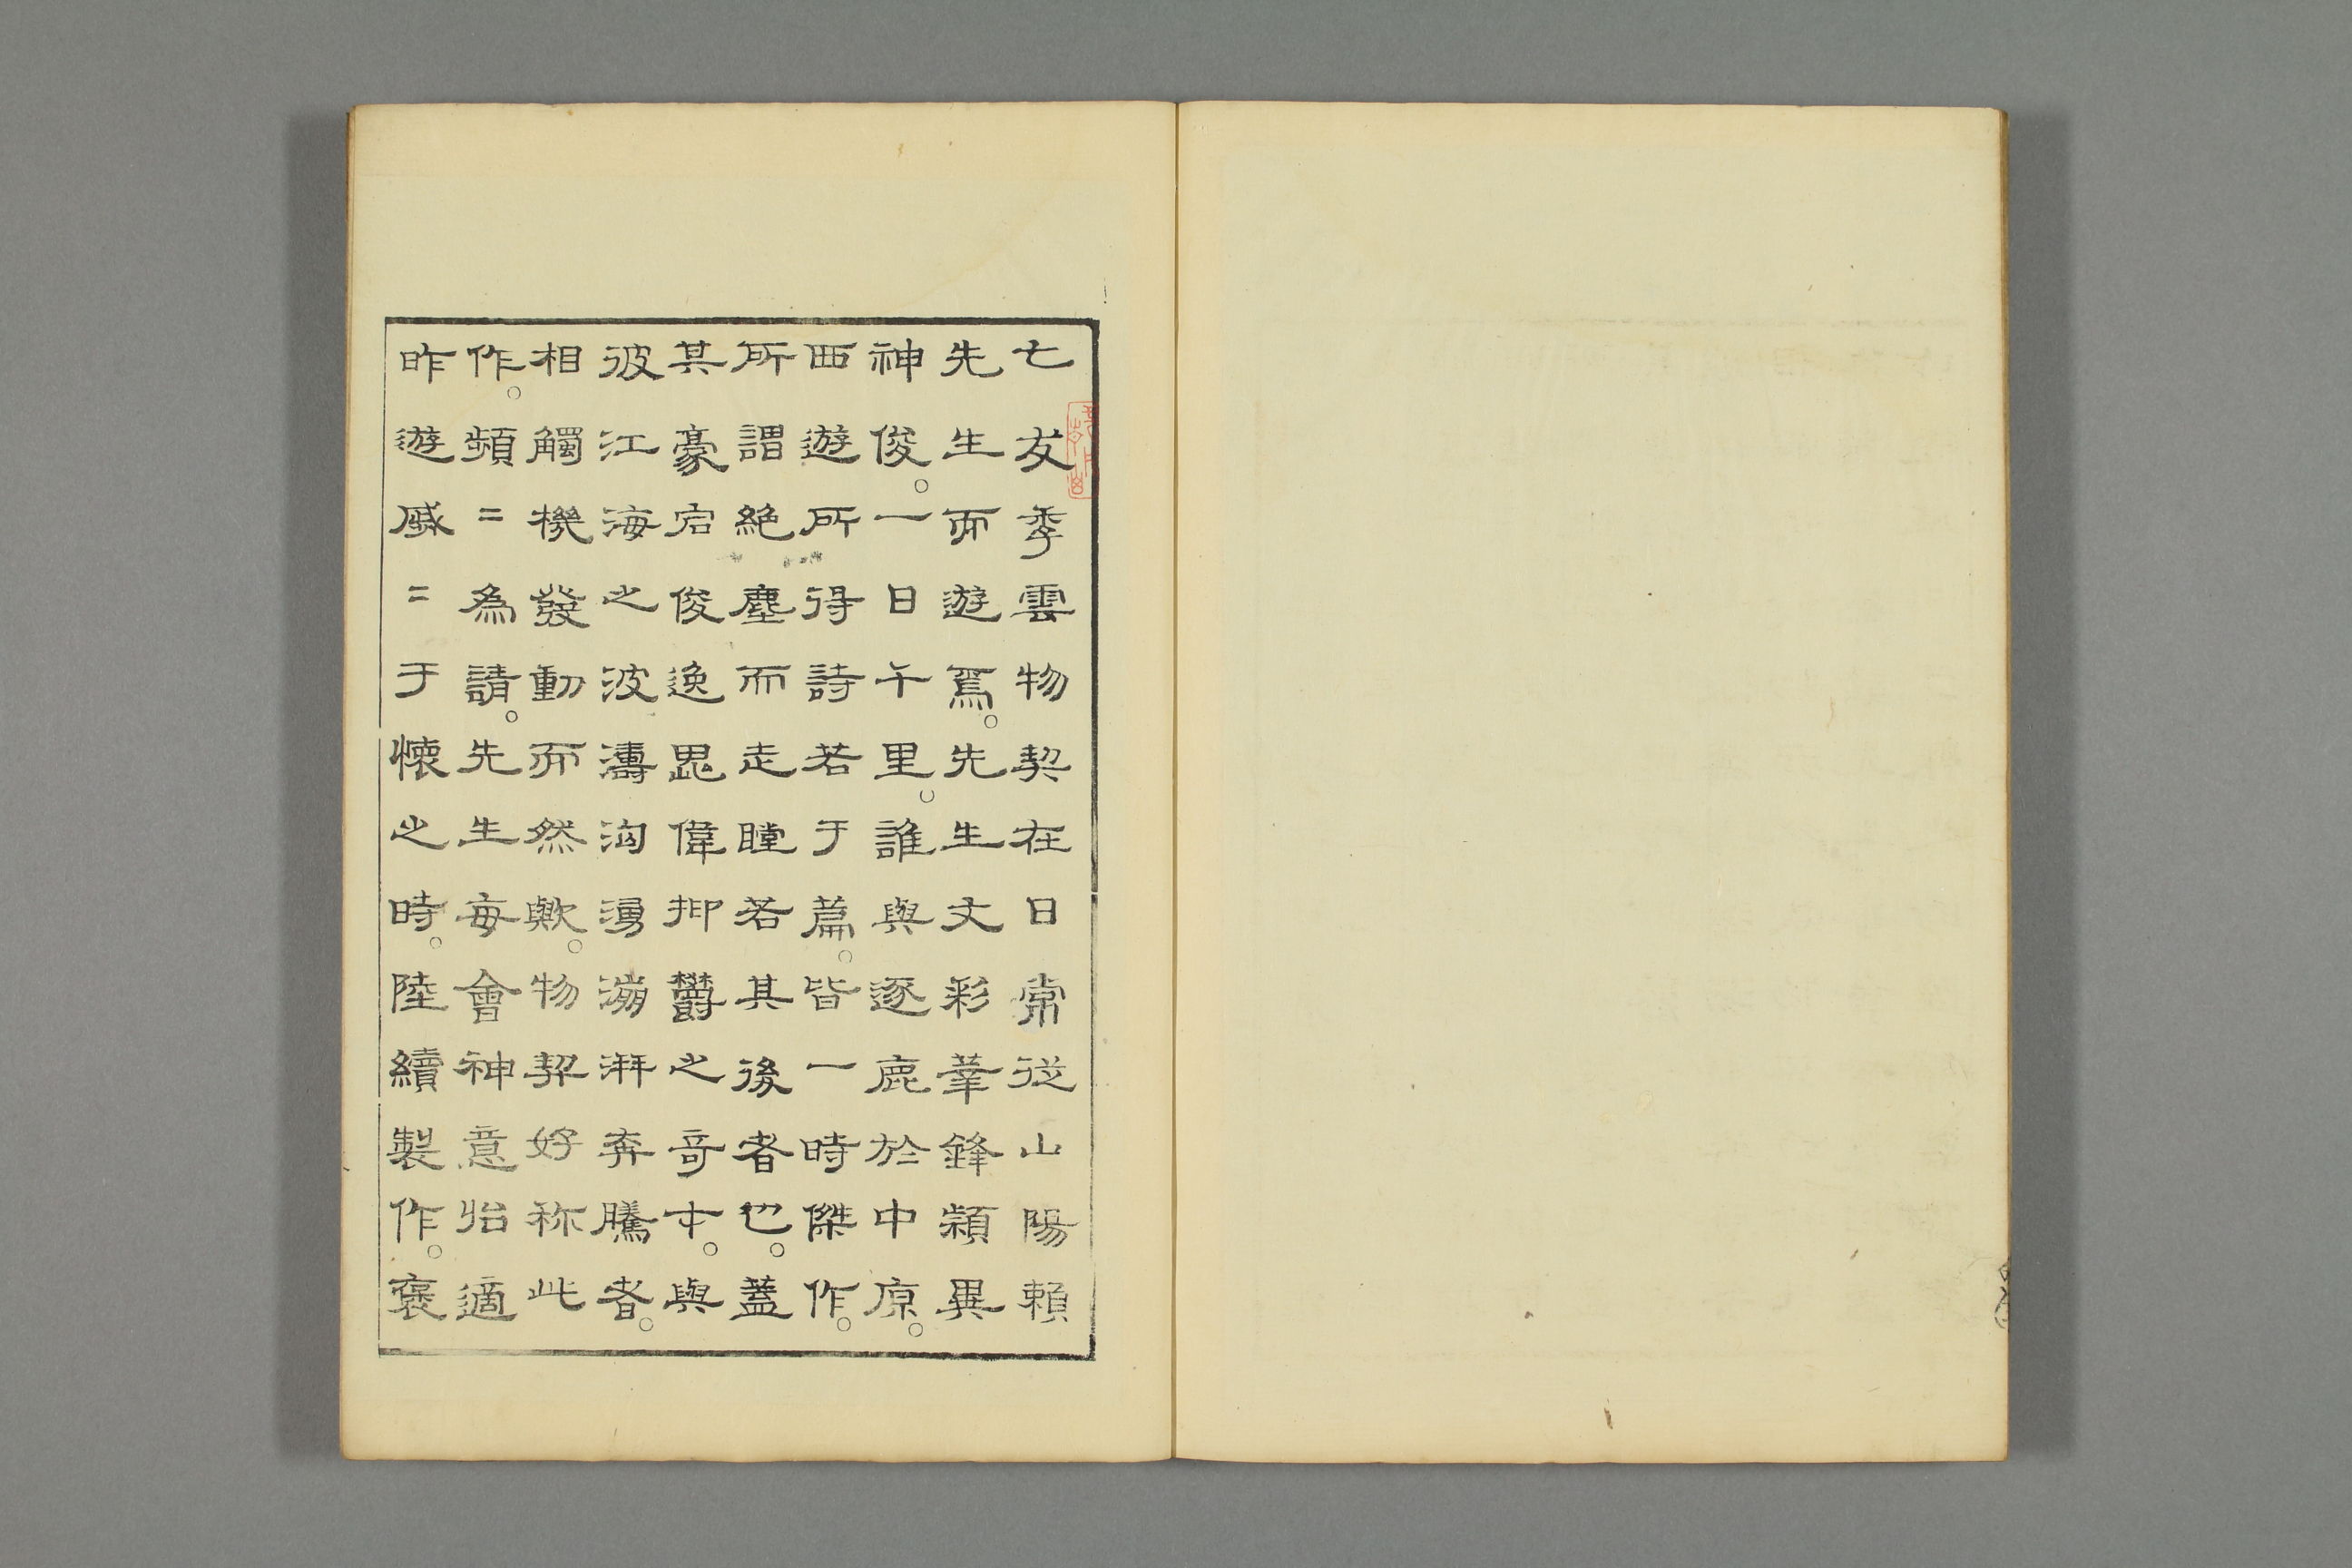 亡友季雲物契在日常從山陽賴
先生而遊焉。先生文彩華鋒穎異
神俊。一日千里。誰與逐鹿於中原。
西遊所得詩若干篇。皆一時傑作。
所謂絕塵而走瞠若其後者也。蓋
其豪宕俊逸 偉抑鬱之奇才。與
彼江海之波濤洶湧澎湃奔騰者。
相觸機發動而然歟。物契好称此
作。頻〻為請。先生每會神意怡適
昨遊感〻于懷之時。陸續製作。裒